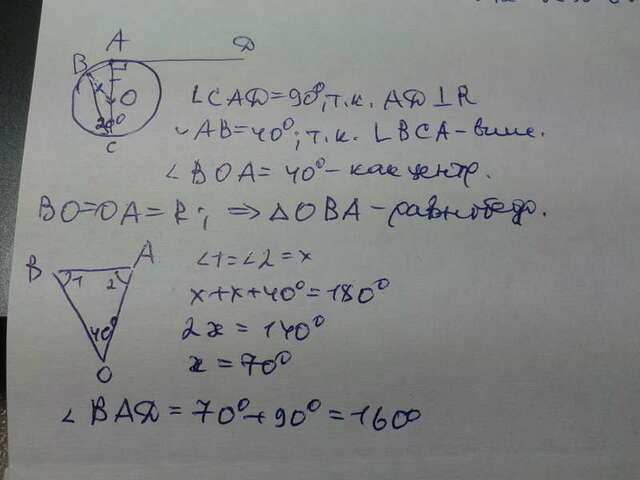 A Д
B
O
20°
C
∠CAД=90°, т.к. AД⊥R
◡AB=40°; т.к. ∠BCA-впис.
∠BOA=40°-как центр.
BO=OA=R; ⇒ △OBA-равнобедр.
B A
1 2
40°
O
∠1=∠2=x
x+x+40°=180°
2x=140°
x=70°
∠BAД=70°+90°=160°